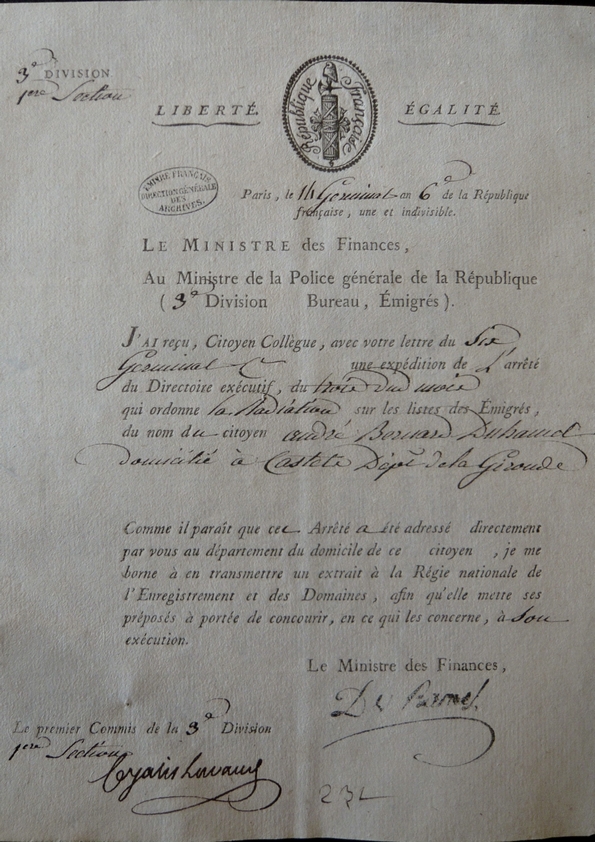 3e DIVISION
1ere Section
LIBERTÉ.
République française
ÉGALITÉ.
EMPIRE FRANÇAIS
DIRECTION GÉNÉRALE
DES
ARCHIVES.
Paris, le 14 Germinal an 6e de la République
française, une et indivisible.
LE MINISTRE des Finances,
Au Ministre de la Police générale de la République
(3e Division Bureau, Émigrés).
J'AI reçu, Citoyen Collègue, avec votre lettre du Six
Germinal une expédition de L'arrêté
du Directoire exécutif, du trois du mois
qui ordonne la Radiation sur les listes des Émigrés,
du nom du citoyen andré Bernard Duhamel
domicilié à Castets Dépt de la Gironde
Comme il paraît que cet Arrêté a été adressé directement
par vous au département du domicile de ce citoyen, je me
borne à en transmettre un extrait à la Régie nationale de
l'Enregistrement et des Domaines, afin qu'elle mette ses
préposés à portée de concourir, en ce qui les concerne, à son
exécution.
Le Ministre des Finances,
Le premier Commis de la 3e Division
1ere Section